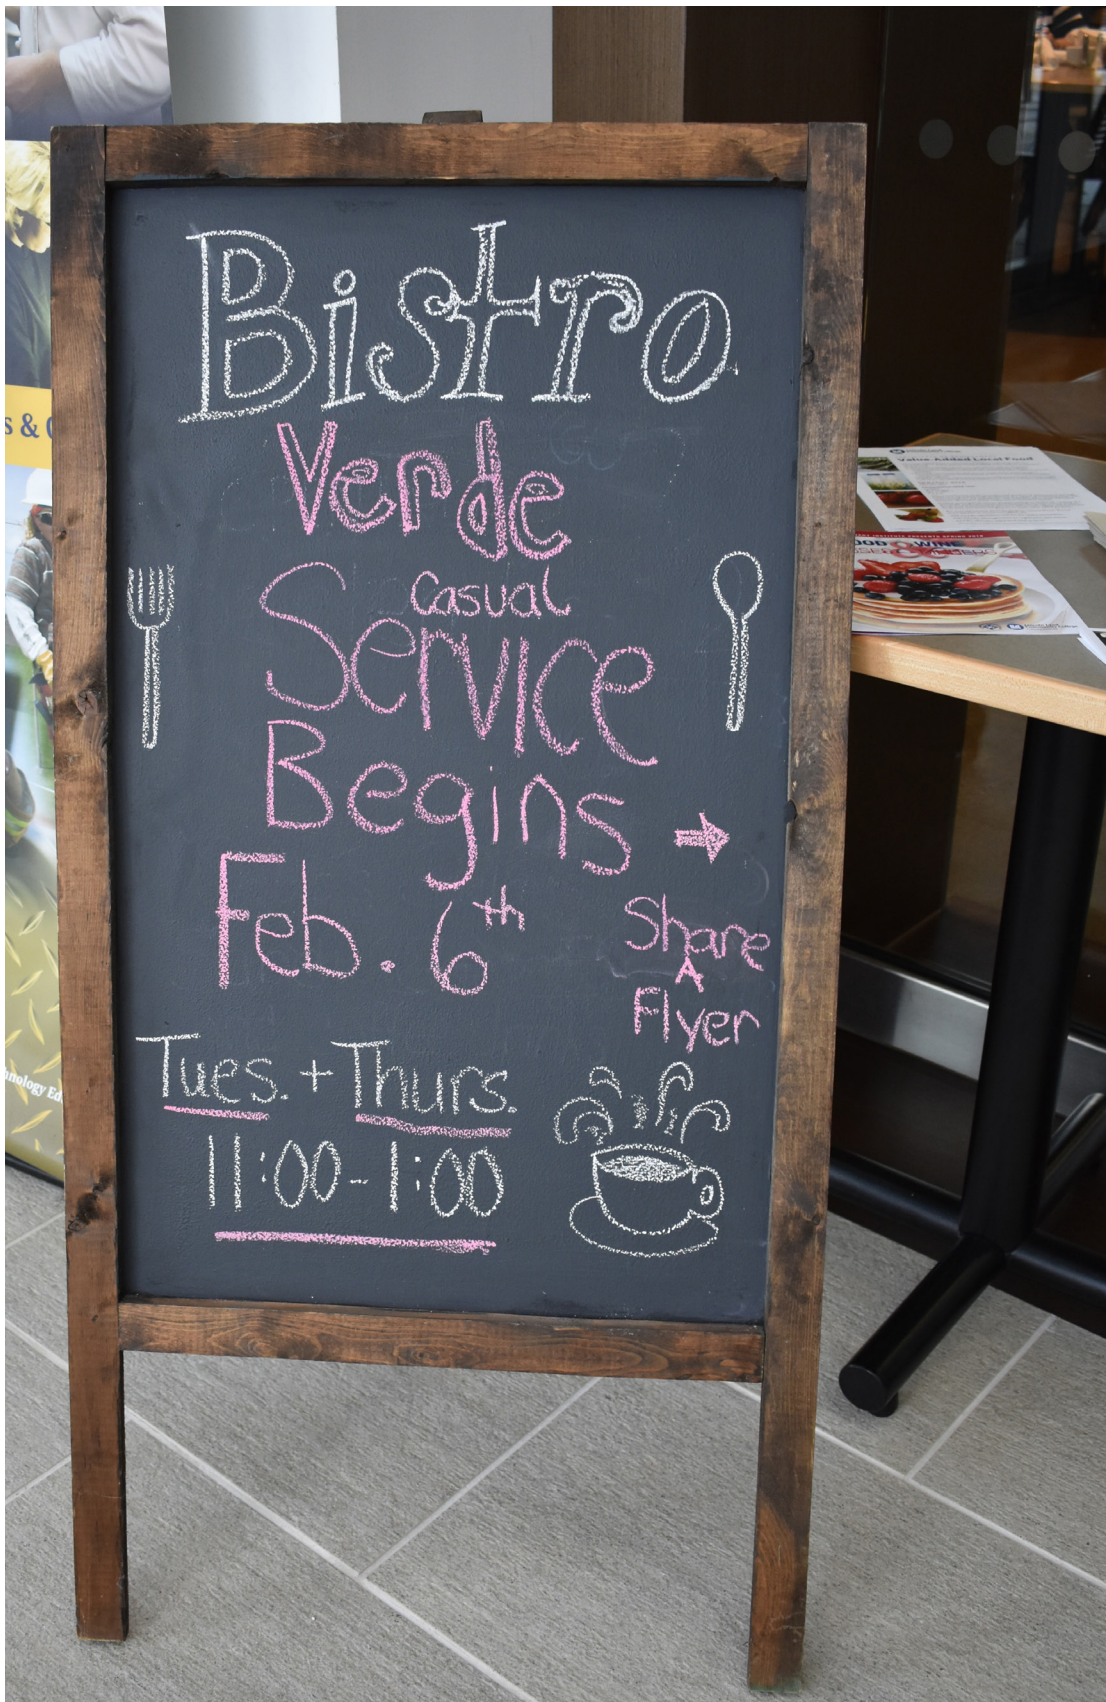 Bistro
Verde
Casual
Service
Begins
Feb. 6th
Share
A
Flyer
Tues. + Thurs.
11:00-1:00
s &
Value-Added Local Food
WINE